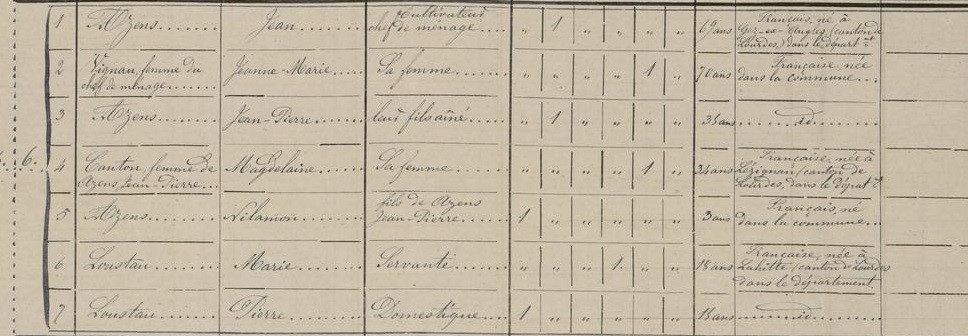 1 Azens Jean Cultivateur chef de ménage " 1 " " " " 69 ans Français, né à Gez-ez-Angles (canton de Lourdes,) dans le départ.t
2 Vignau, femme du chef de ménage Jeanne-Marie Sa femme " " " " 1 " 70 ans Française, née dans la commune
3 Azens Jean-Pierre leur fils aîné " 1 " " " " 35 ans id.
6. 4 Canton, femme de Azens, Jean-Pierre Magdelaine Sa femme " " " " 1 " 34 ans Française, née à Lézignan (canton de Lourdes, dans le départ.t
5 Azens Nilamon fils de Azens Jean-Pierre 1 " " " " " 3 ans Français, né dans la commune
6 Loustau Marie Servante " " " 1. " " 18 ans Française, née à Lahitte (canton de Lourdes dans le département
7 Loustau Pierre Domestique 1 " " " " " ans id.